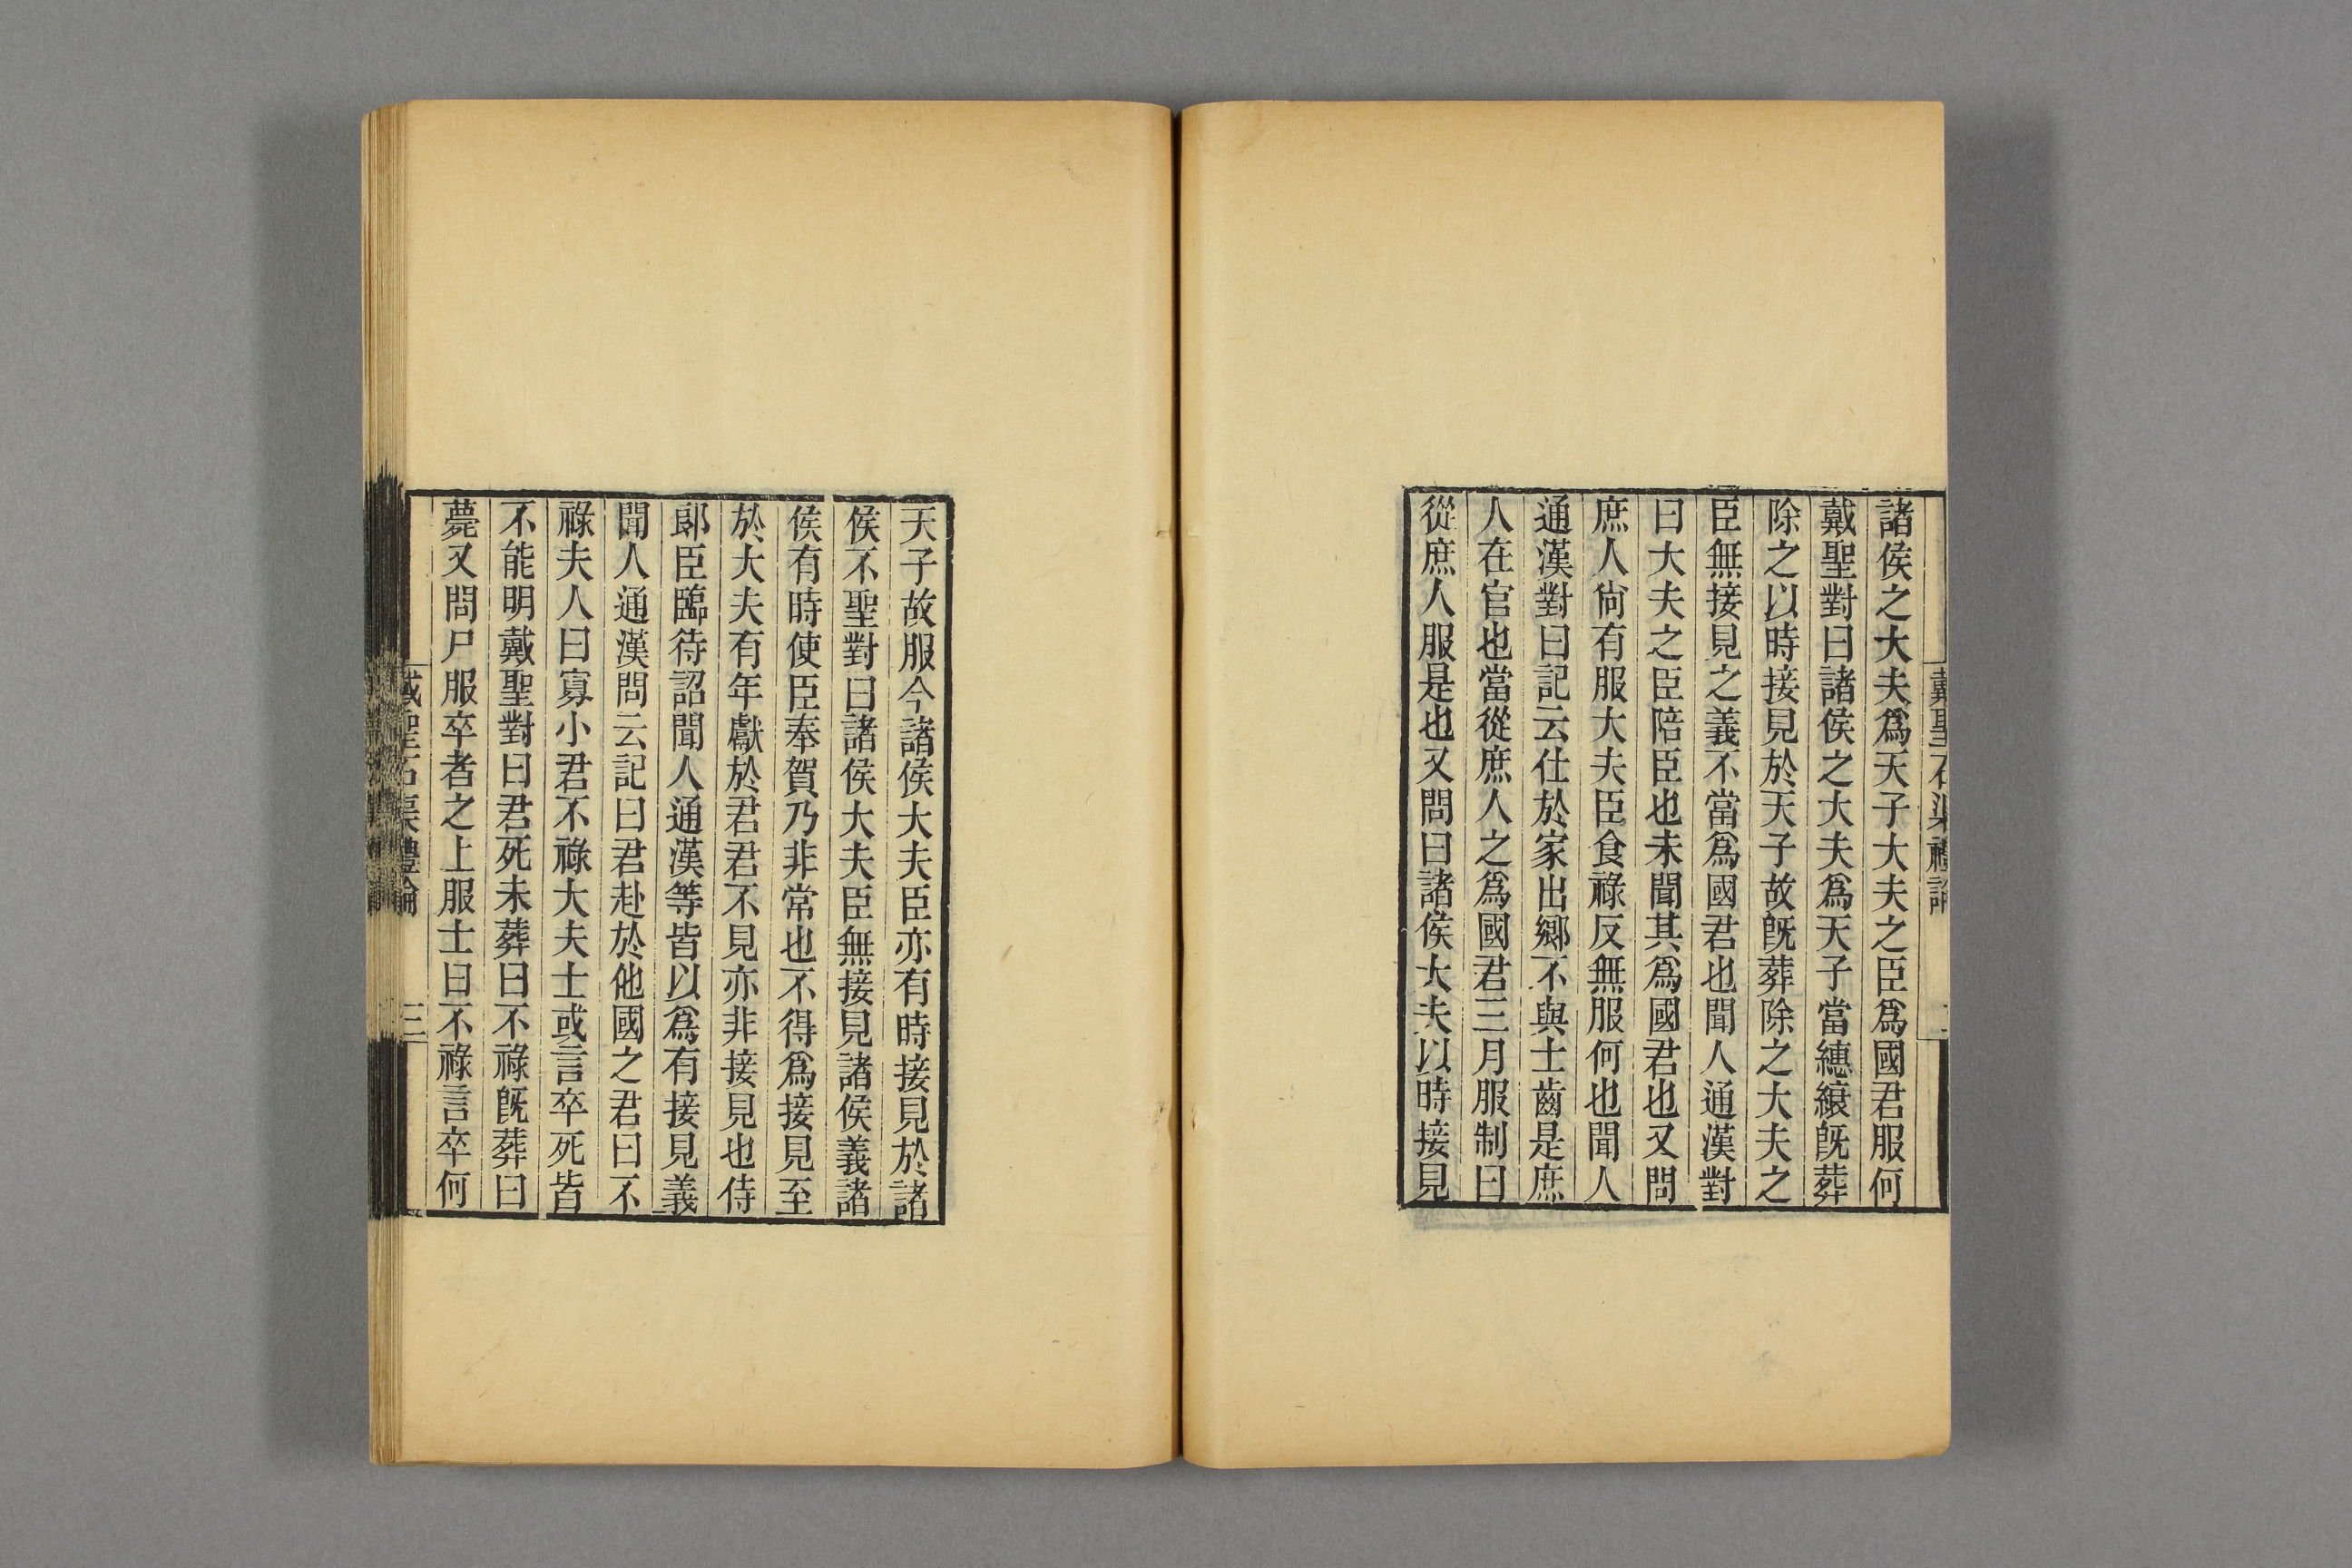 戴聖石渠禮論
諸侯之大夫爲天子大夫之臣爲國君服何
戴聖對曰諸侯之大夫爲天子當繐縗旣葬
除之以時接見於天子故旣葬除之大夫之
臣無接見之義不當爲國君也聞人通漢對
曰大夫之臣陪臣也未聞其爲國君也又問
庶人尙有服大夫臣食祿反無服何也聞人
通漢對曰記云仕於家出鄉不與士齒是庶
人在官也當從庶人之爲國君三月服制曰
從庶人服是也又問曰諸侯大夫以時接見
天子故服今諸侯大夫臣亦有時接見於諸
侯不聖對曰諸侯大夫臣無接見諸侯義諸
侯有時使臣奉賀乃非常也不得爲接見至
於大夫有年獻於君君不見亦非接見也侍
郞臣臨待詔聞人通漢等皆以爲有接見義
聞人通漢問云記曰君赴於他國之君曰不
祿夫人曰寡小君不祿大夫士或言卒死皆
不能明戴聖對曰君死未葬曰不祿旣葬曰
薨又問尸服卒者之上服士曰不祿言卒何
戴聖石渠禮論
三